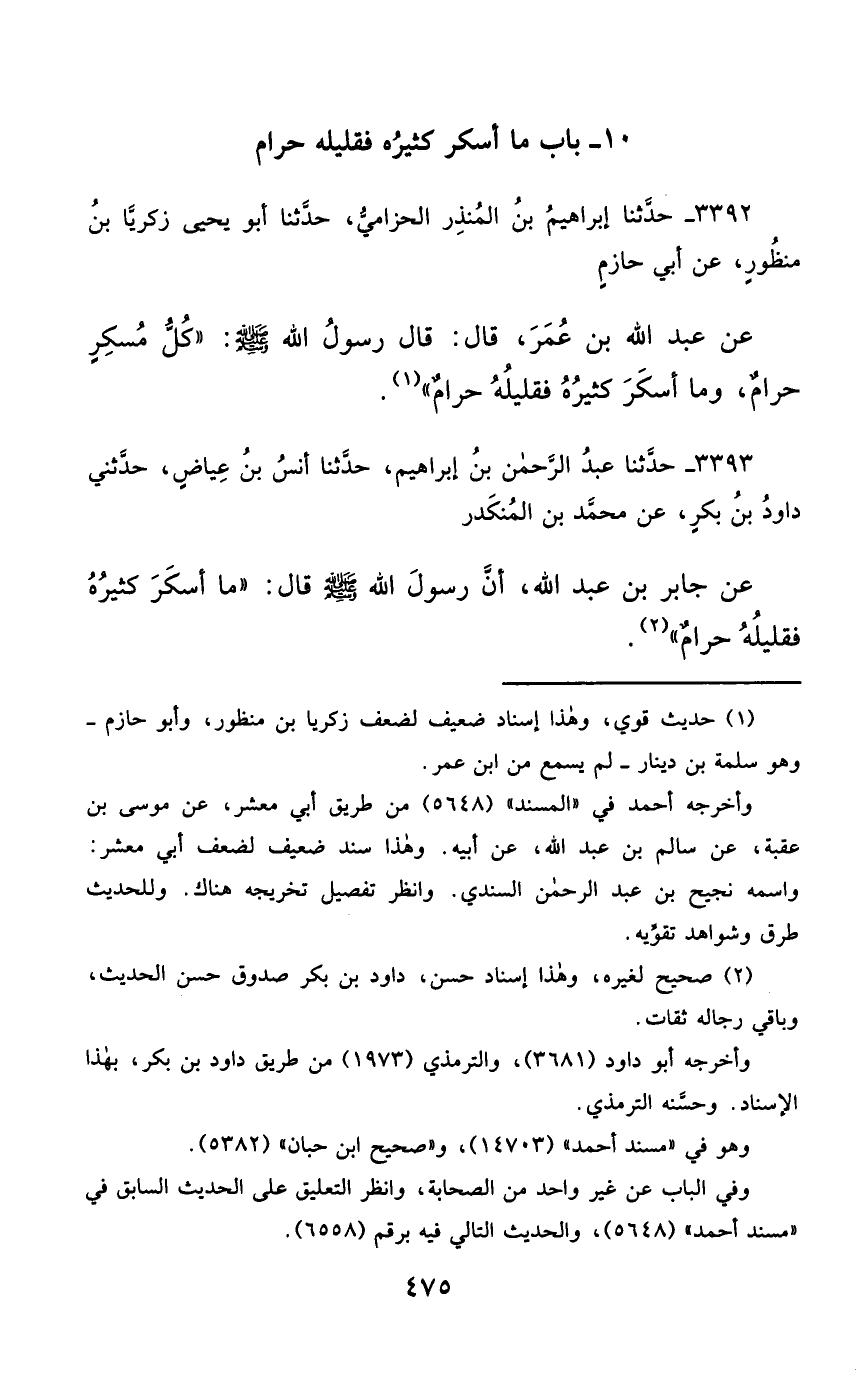 ١٠ـ باب ما أسكر كثيرُه فقليله حرام
٣٣٩٢ـ حدَّثنا إبراهيمُ بنُ المُنذِر الحزاميُّ، حدَّثنا أبو يحيى زكريَّا بنُ
منظُورٍ، عن أبي حازمٍ
عن عبد الله بن عُمَرَ، قال: قال رسولُ الله ﷺ: «كُلُّ مُسكِرٍ
حرامٌ، وما أسكَرَ كثيرُهُ فقليلُهُ حرامٌ»(١).
٣٣٩٣ـ حدَّثنا عبدُ الرَّحمٰن بنُ إبراهيم، حدَّثنا أنسُ بنُ عِياضٍ، حدَّثني
داودُ بنُ بكرٍ، عن محمَّد بن المُنكَدر
عن جابر بن عبد الله، أنَّ رسولَ الله ﷺ قال: «ما أسكَرَ كثيرُهُ
فقليلُهُ حرامٌ»(٢).
(١) حديث قوي، وهٰذا إسناد ضعيف لضعف زكريا بن منظور، وأبو حازم ـ
وهو سلمة بن دينار ـ لم يسمع من ابن عمر.
وأخرجه أحمد في «المسند» (٥٦٤٨) من طريق أبي معشر، عن موسى بن
عقبة، عن سالم بن عبد الله، عن أبيه. وهٰذا سند ضعيف لضعف أبي معشر:
واسمه نجيح بن عبد الرحمٰن السندي. وانظر تفصيل تخريجه هناك. وللحديث
طرق وشواهد تقوِّيه.
(٢) صحيح لغيره، وهٰذا إسناد حسن، داود بن بكر صدوق حسن الحديث،
وباقي رجاله ثقات.
وأخرجه أبو داود (٣٦٨١)، والترمذي (١٩٧٣) من طريق داود بن بكر، بهٰذا
الإسناد. وحسَّنه الترمذي.
وهو في «مسند أحمد» (١٤٧٠٣)، و«صحيح ابن حبان» (٥٣٨٢).
وفي الباب عن غير واحد من الصحابة، وانظر التعليق على الحديث السابق في
«مسند أحمد» (٥٦٤٨)، والحديث التالي فيه برقم (٦٥٥٨).
٤٧٥